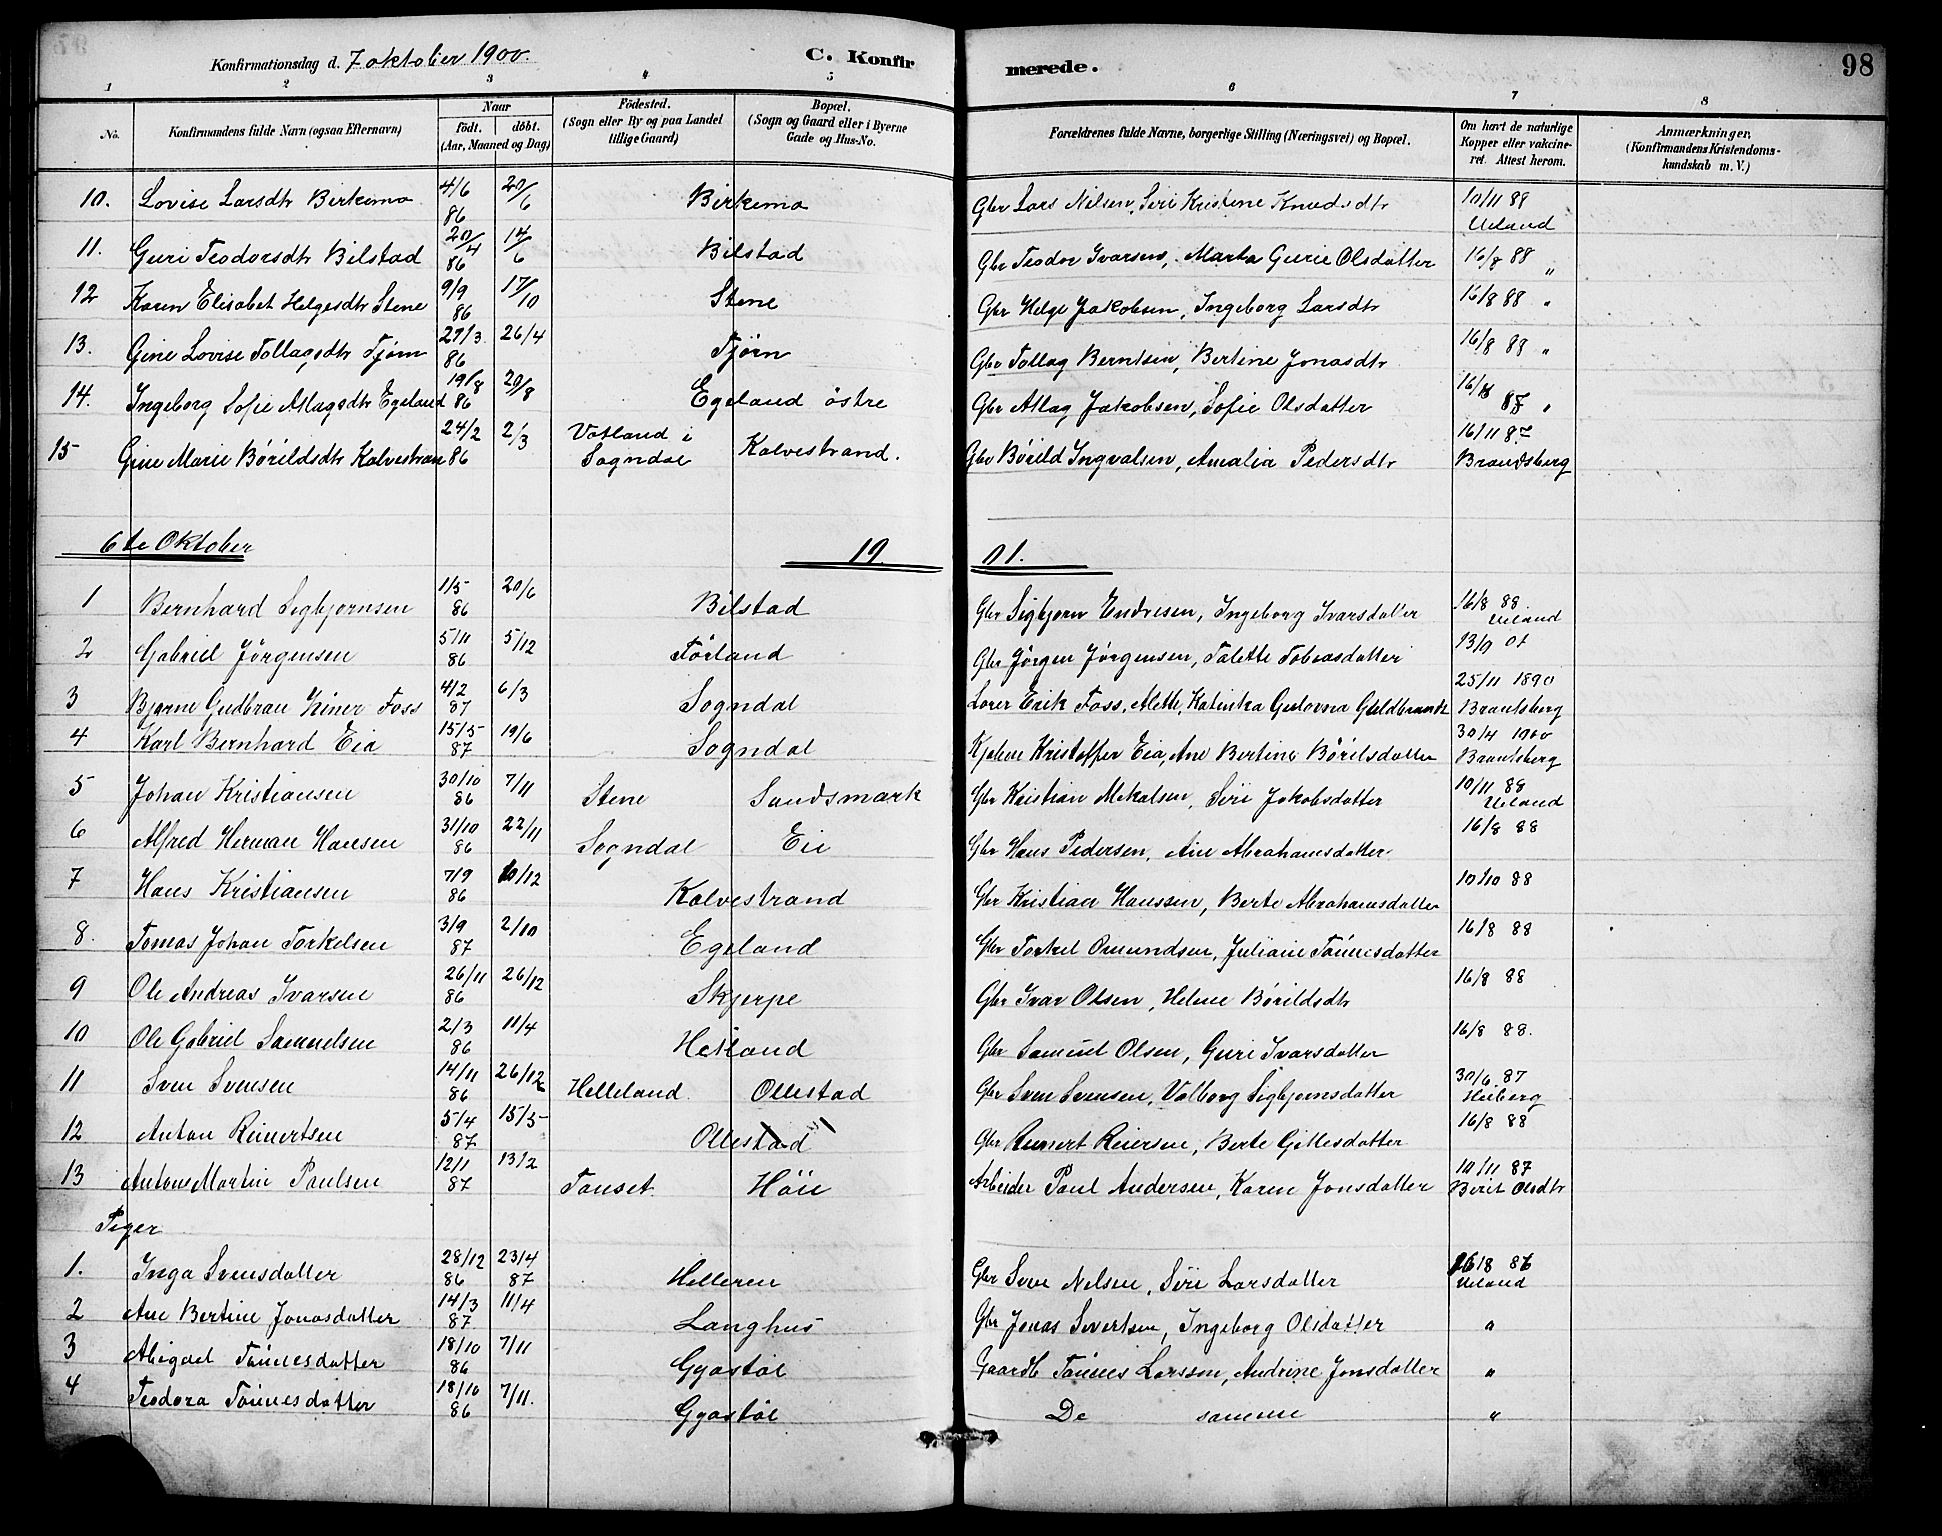 Konfirmationsdag d. 7 oktober 1900. C. Konfirmerede. 98
1 2 3 4 5 6 7 8
No. Konfirmandens fulde Navn (ogsaa Efternavn) Naar födt. döbt. (Aar, Maaned og Dag) Födested. (Sogn eller By og paa Landet tillige Gaard) Bopæl. (Sogn og Gaard eller i Byerne Gade og Hus-No. Forældrenes fulde Navne, borgerlige Stilling (Næringsvei) og Bopæl. Om havt de naturlige Kopper eller vakcineret. Attest herom. Anmærkninger, (Konfirmandens Kristendomskundskab m. V.)
10. Lovise Larsdtr Birkemo 4/6 86 20/6 Birkemo Gbr Lars Nilsen, Siri Kristine Knudsdtr 10/11 88 Ueland
11. Guri Teodorsdtr Bilstad 20/4 86 14/6 Bilstad Gbr Teodor Ivarsen, Marta Gurie Olsdatter 16/8 88 "
12 Karen Elisabet Helgesdtr Stene 9/9 86 17/10 Stene Gbr Helge Jakobsen, Ingeborg Larsdtr 16/8 88 "
13. Gine Lovise Tollagsdtr Tjörn 27/3 86 26/4 Tjörn Gbr Tollag Berntsen, Bertine Jonasdtr 16/8 88 "
14. Ingeborg Sofie Atlagsdtr Egeland 19/8 86 29/8 Egeland östre Gbr Atlag Jakobsen, Sofie Olsdatter 16/8 87 "
15 Gine Marie Börildsdtr Kalvestran 24/2 86 2/3 Vatland i Sogndal Kalvestrand. Gbr Börild Ingvalsen, Amalia Pedersdtr 16/11 87 Brandsberg
6te Oktober 19 01.
1 Bernhard Sigbjørnsen 1/5 86 20/6 Bilstad Gbr Sigbjørn Endresen, Ingeborg Ivarsdatter 16/8 88. Ueland
2 Gabriel Jörgensen 5/11 86 5/12 Förland Gbr Jörgen Jörgensen, Talette Tobiasdatter 13/9 01
3 Bjarne Gudbran Foss 4/2 87 6/3 Sogndal Lærer Erik Foss, Mette Katinka Gulovna Guldbrands 25/11 1890 Brantsberg
4 Karl Bernhard Eia 15/5 87 19/6 Sogndal Kristoffer Eia, Ane Bertine Börilsdatter 30/4 1900 Brantsberg
5 Johan Kristiansen 30/10 86 7/11 Stene Sandsmark Gbr Kristian Mikalsen, Siri Jakobsdatter 10/11 88 Ueland
6 Alfred Herman Hansen 31/10 86 22/11 Sogndal Eie Gbr Hans Pedersen, Ane Abrahamsdatter 16/8 88
7 Hans Kristiansen 7/9 86 10/12 Kalvestrand Gbr Kristian Hanssen, Berte Abrahamsdatter 10/10 88
8. Tomas Johan Torkelsen 3/9 87 2/10 Egeland Gbr Torkel Omundsen, Juliane Tönnesdatter 16/8 88
9 Ole Andreas Ivarsen 26/11 86 26/12 Skjerpe Gbr Ivar Olsen, Helene Börildsdtr 16/8 88
10 Ole Gabriel Samuelsen 2/3 86 11/4 Hetland Gbr Samuel Olsen, Guri Ivarsdatter 16/8 88.
11 Sven Svensen 14/11 86 26/12 Helleland Ollestad Gbr Sven Svensen, Valborg Sigbjørnsdatter 30/6 87 Heiberg
12 Anton Reinertsen 5/4 87 15/5 Ollestad Gbr Reinert Reiersen, Berte Gillesdatter 16/8 88
13 Antone Martin Paulsen 12/1 87 13/2 Tonset Höie Arbeider Paul Andersen, Karen Jonsdatter 10/11 87 Berit Olsdtr
Piger
1. Inga Svensdatter 28/12 86 23/4 87 Helleren Gbr Sven Nilsen, Siri Larsdatter 16/8 86 Ueland
2 Ane Bertine Jonasdatter 14/3 87 11/4 Langhus Gbr Jonas Sivertsen, Ingeborg Olsdatter "
3 Abigael Tönnesdatter 18/10 86 7/11 Gyastöl Gaardb Tönnes Larsson, Andrine Jonsdatter "
4 Teodora Tönnesdatter 18/10 86 7/11. Gyastöl De samme "